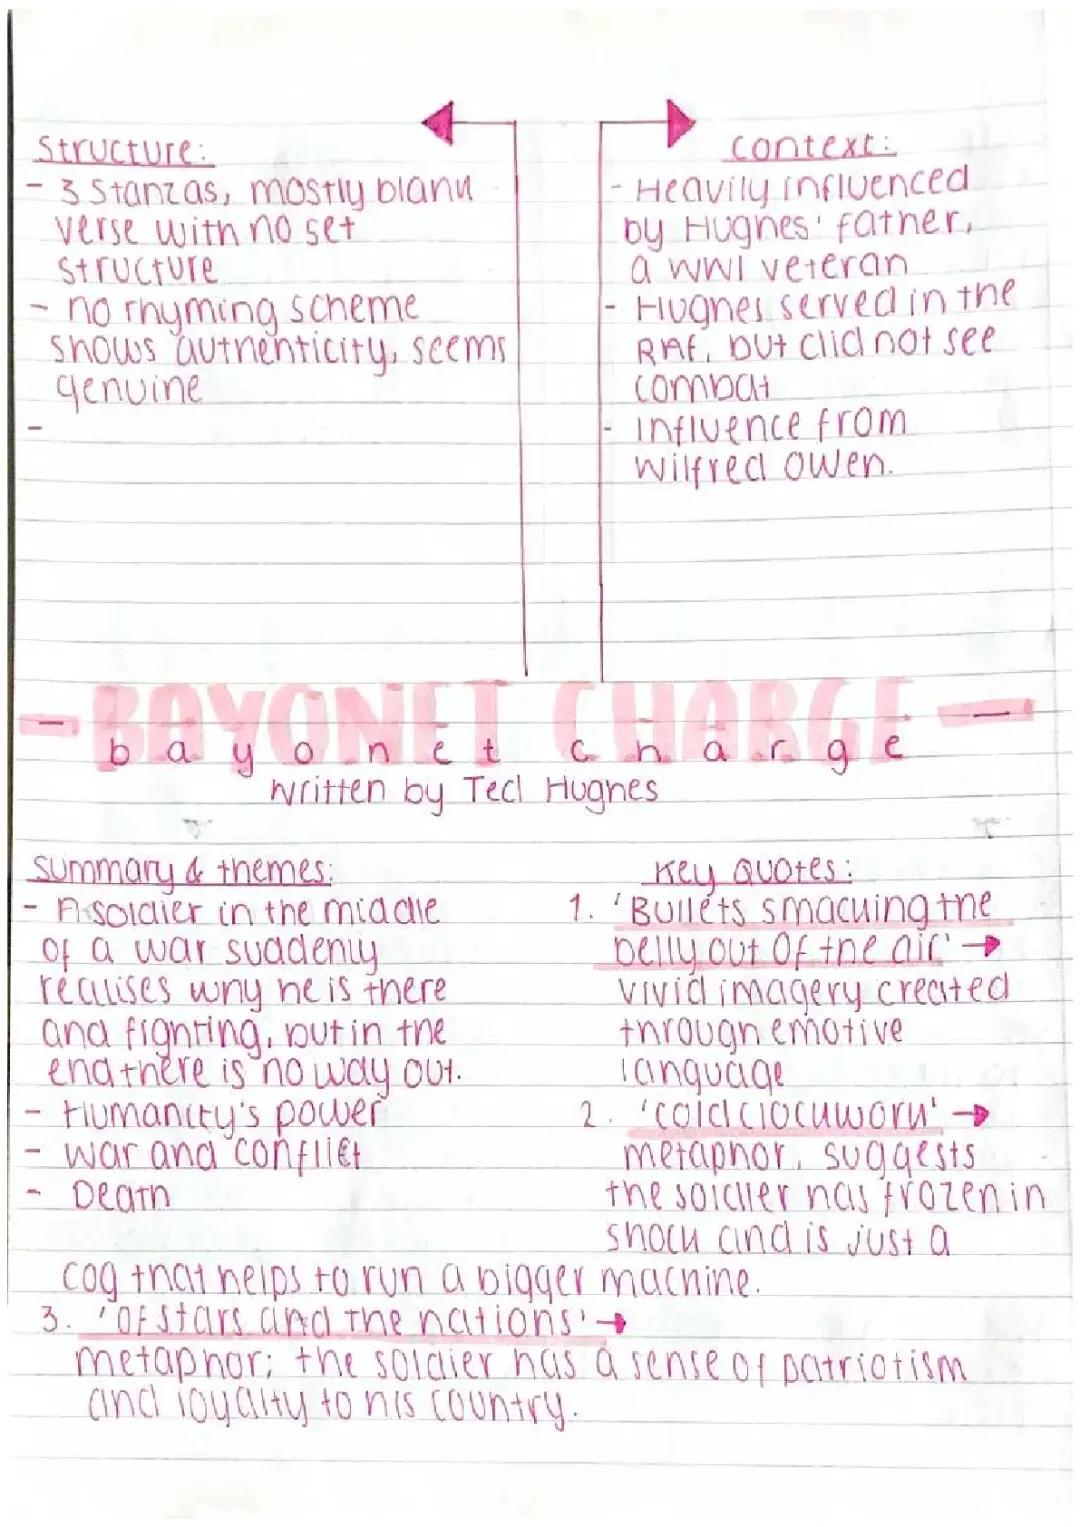 Structure:
- 3 Stanzas, mostly blank
verse with no set
structure
- no rhyming scheme
shows authenticity, seems
genuine
-
context:
- Heavily influenced
by Hughes' father,
a WW1 veteran
- Hughes served in the
RAF, but did not see
combat
- influence from
wilfred owen.
- BAYONET CHARGE -
bayonet charge
written by Ted Hughes
summary & themes:
- A soldier in the middle
of a war suddenly
realises why he is there
and fighting, but in the
end there is no way out.
- Humanity's power
- war and conflict
- Death
Key Quotes:
1. 'Bullets smacking the
belly out of the air' →
vivid imagery created
through emotive
language
2. 'cold clockwork' →
metaphor, suggests
the soldier has frozen in
shock and is just a
cog that helps to run a bigger machine.
3. 'of stars and the nations' →
metaphor; the soldier has a sense of patriotism
and loyalty to his country.